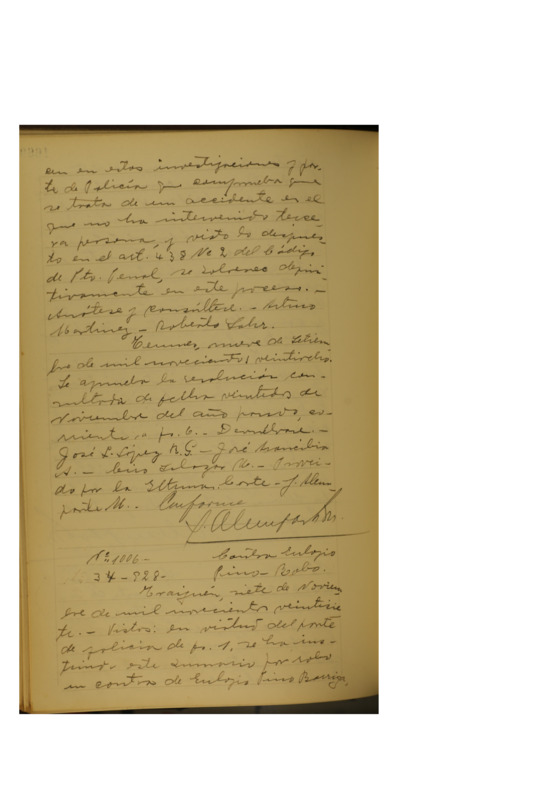 cen en estas investigaciones y par-
te de Policía que comprueba que
se trata de un accidente en el
que no ha intervenido terce
ra persona, y visto lo dispues-
to en el art. 438 No 2 del Código
de Pto. Penal, se sobresee defini-
tivamente en este proceso. -
Anótese y consúltese. - Arturo
Martínez - Roberto
Temuco, nueve de
bre de mil novecientos veintiocho.
Se aprueba la resolución con-
sultada de fecha veintidos de
Noviembre del año pasado, es-
crita a fs. 6. - Devuélvase. -
José L. López R. G. - José
A. - Luis Salazar - Provei-
do por la Iltma. Corte - J. Alem-
parte M. - Conforme
J. Alemparte M.
No 1006 - Contra Eulogio
34 - 928 - Pino - Robo.
Traiguén, siete de Noviem
bre de mil novecientos veintisie
te. - Vistos: en virtud del parte
de policía de fs. 1, se ha ins-
truido este sumario por robo
en contra de Eulogio Pino Barriga,